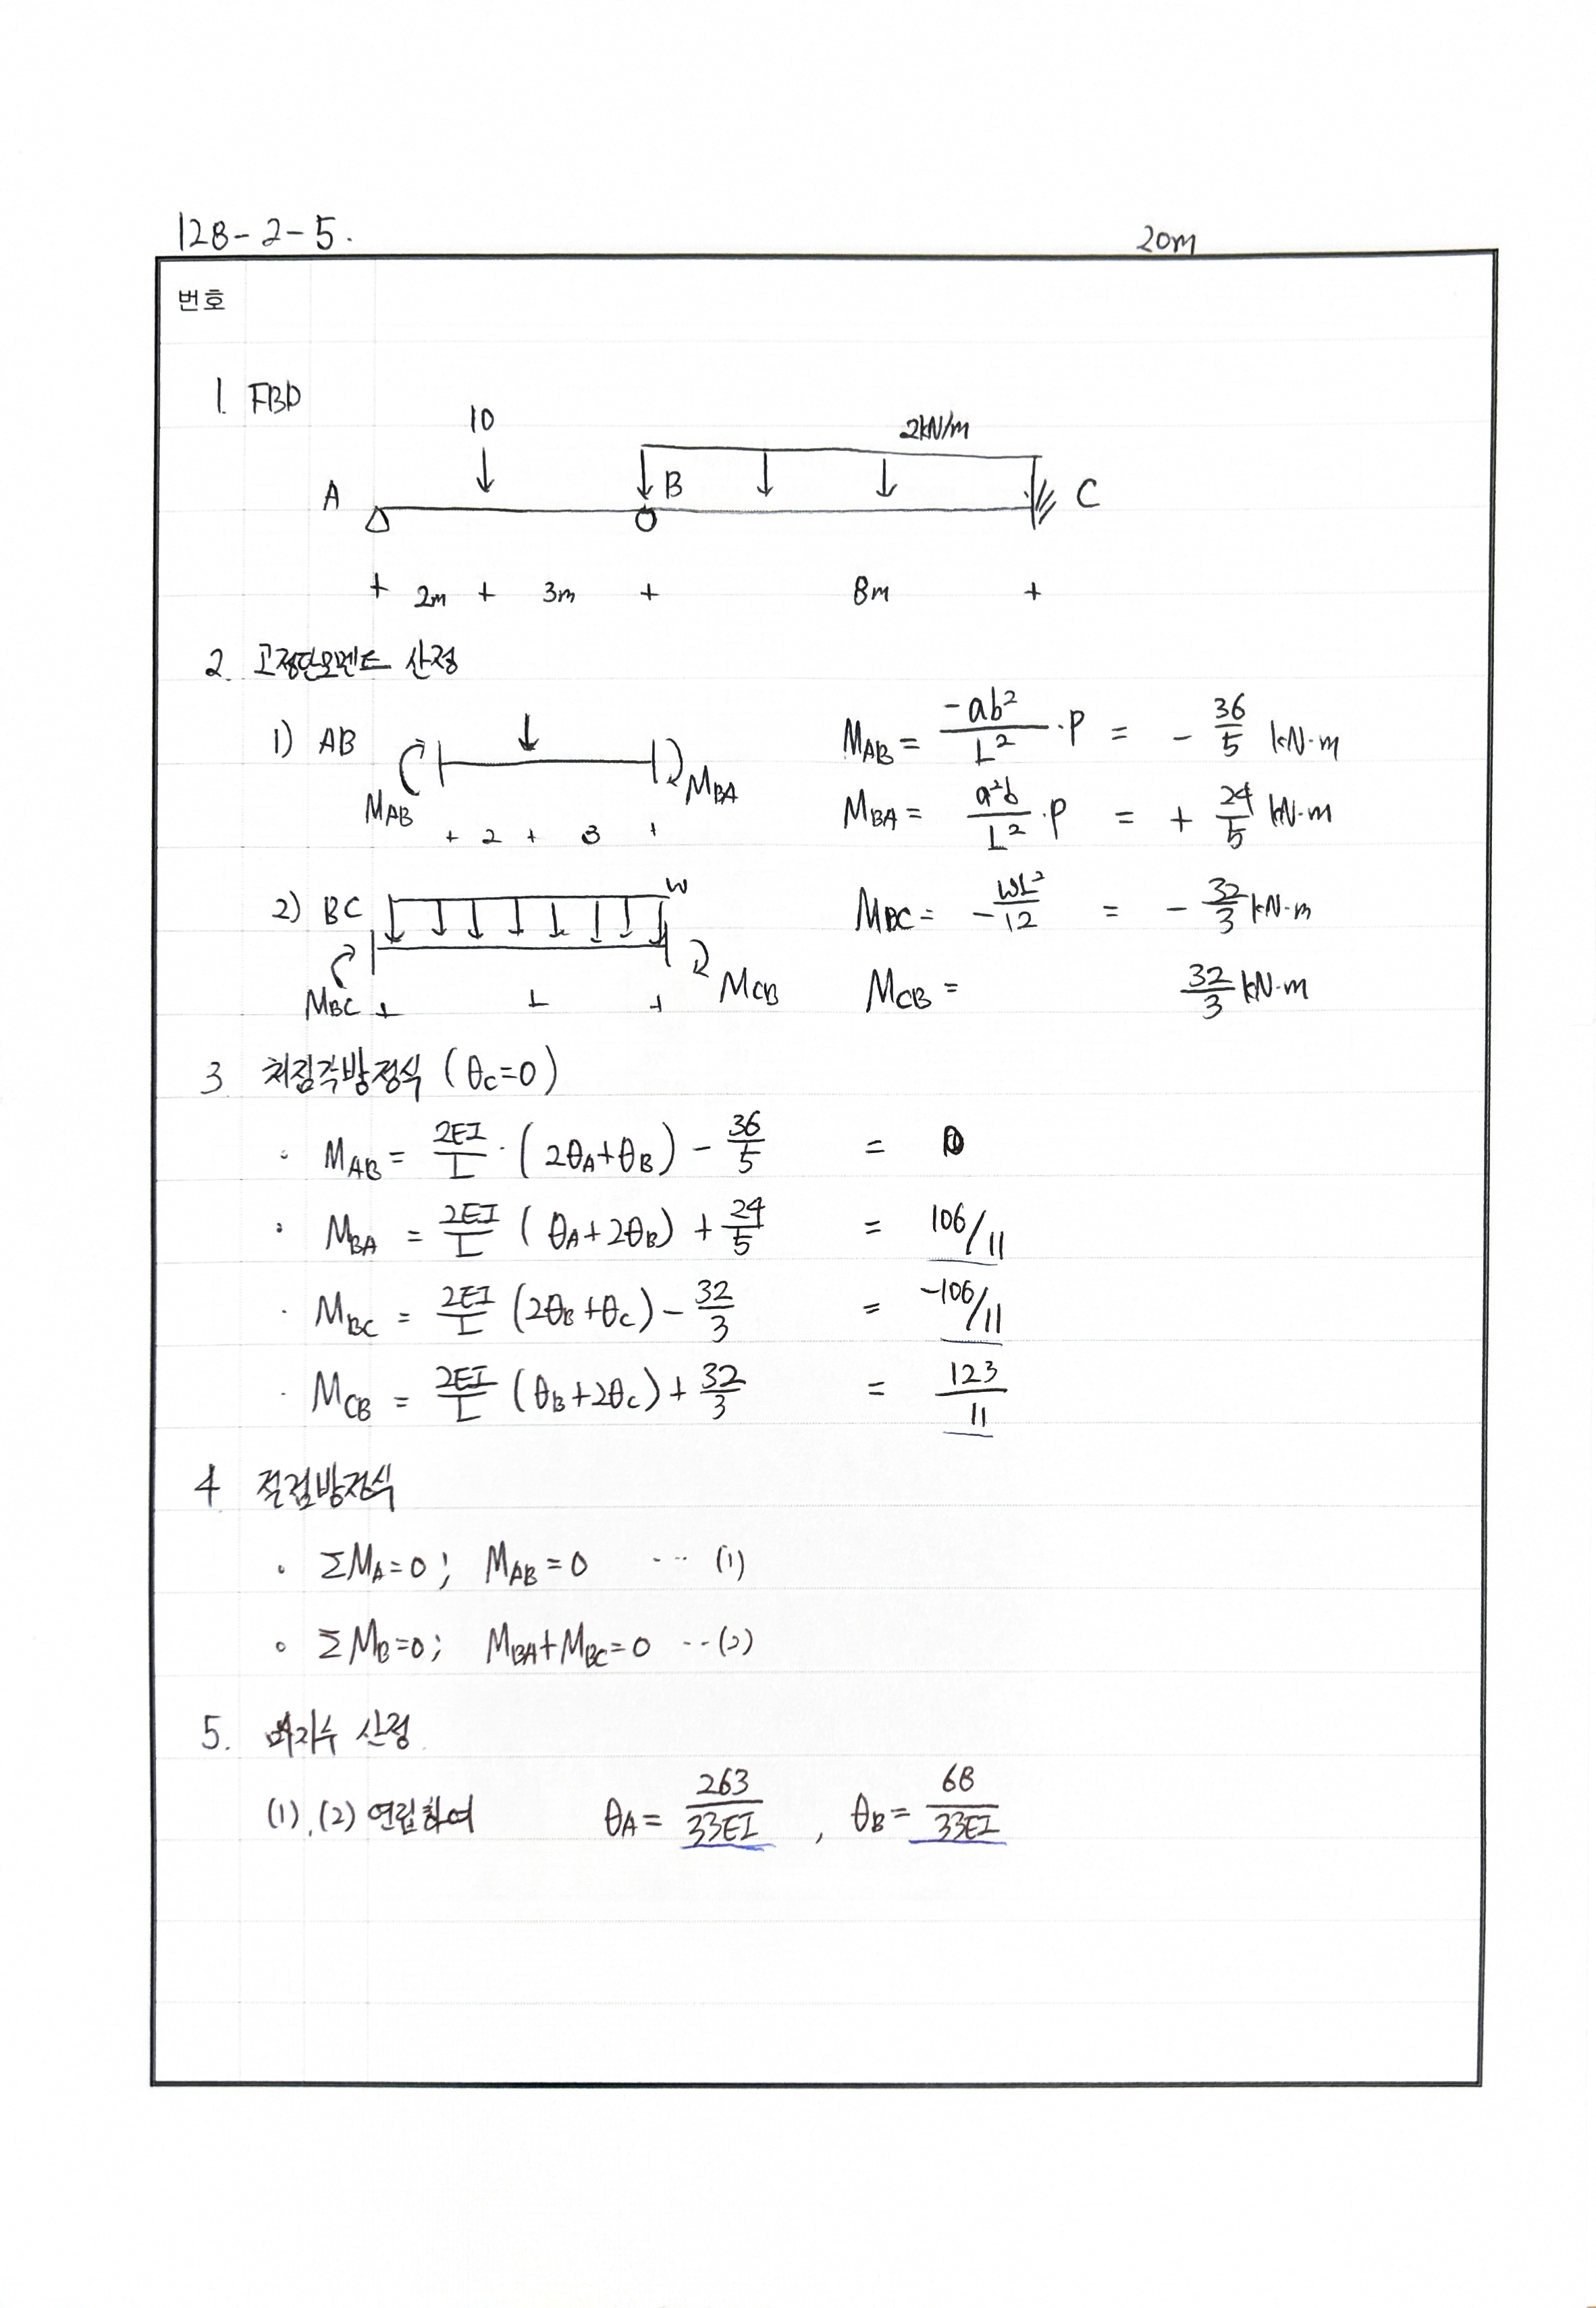 128-2-5.
20m
번호
1. FBD
10
2kN/m
A
B
C
+ 2m + 3m + 8m +
2. 고정단모멘트 산정
1) AB
M_AB
M_BA
+ 2 + 3 +
M_AB = -ab²/L² · P = - 36/5 kN·m
M_BA = a²b/L² · P = + 24/5 kN·m
2) BC
w
M_BC
M_CB
+ L +
M_BC = - wL²/12 = - 32/3 kN·m
M_CB = 32/3 kN·m
3 처짐각방정식 (θ_C=0)
· M_AB = 2EI/L · (2θ_A+θ_B) - 36/5 = 0
· M_BA = 2EI/L (θ_A+2θ_B) + 24/5 = 106/11
· M_BC = 2EI/L (2θ_B+θ_C) - 32/3 = -106/11
· M_CB = 2EI/L (θ_B+2θ_C) + 32/3 = 123/11
4 절점방정식
· ΣM_A=0; M_AB=0 ··· (1)
· ΣM_B=0; M_BA+M_BC=0 ··(2)
5. 미지수 산정
(1),(2) 연립하여 θ_A = 263/33EI , θ_B = 68/33EI